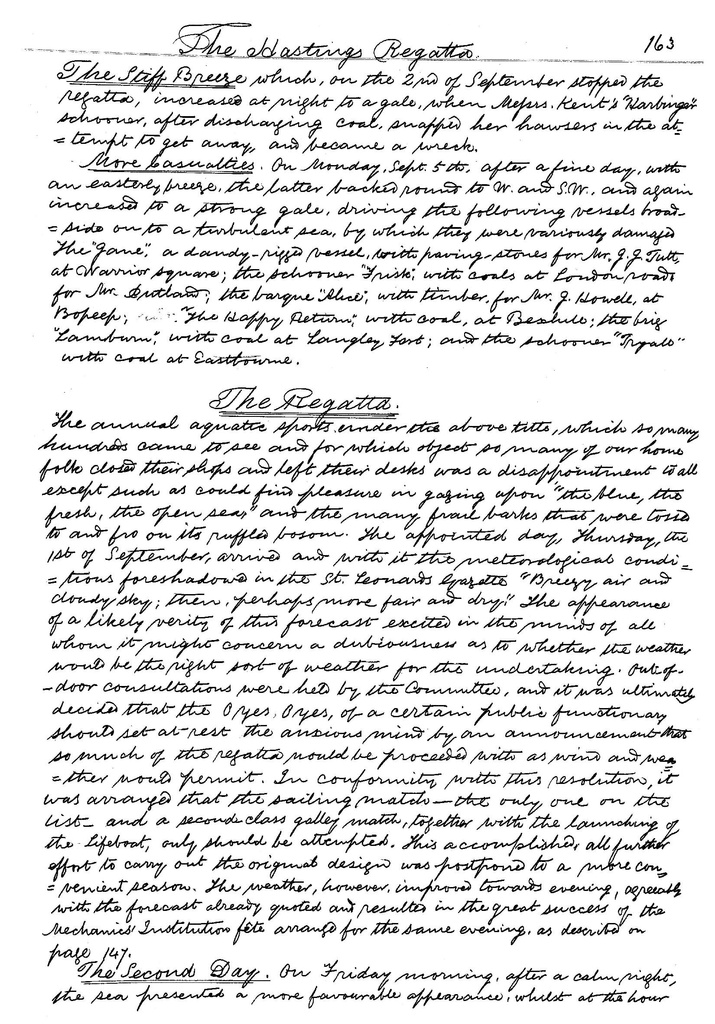 The Hastings Regatta. 163
The Stiff Breeze which, on the 2nd of September stopped the
regatta, increased at night to a gale, when Messrs. Kent's "Harbinger"
schooner, after discharging coal, snapped her hawsers in the at=
=tempt to get away, and became a wreck.
More Casualties. On Monday, Sept. 5th, after a fine day, with
an easterly breeze, the latter backed round to W. and S.W., and again
increased to a strong gale, driving the following vessels broad-
=side on to a turbulent sea, by which they were variously damaged
The "Jane", a dandy-rigged vessel, with paving-stones for Mr. J. J. Tutt,
at Warrior square; the schooner "Frisk", with coals at London road
for Mr. Putland; the barque "Alice", with timber, for Mr. J. Howell, at
Bopeep; "The Happy Return", with coal, at Bexhill; the brig
"Lamburn", with coal at Langley Fort; and the schooner "Tryall"
with coal at Eastbourne.
The Regatta.
The annual aquatic sports under the above title, which so many
hundreds came to see and for which object so many of our home
folk closed their shops and left their desks was a disappointment to all
except such as could find pleasure in gazing upon "the blue, the
fresh, the open sea," and the many frail barks that were tossed
to and fro on its ruffled bosom. The appointed day, Thursday, the
1st of September, arrived and with it the meteorological condi=
=tions foreshadowed in the St. Leonards Gazette "Breezy air and
cloudy sky; then, perhaps more fair and dry." The appearance
of a likely verity of this forecast excited in the minds of all
whom it might concern a dubiousness as to whether the weather
would be the right sort of weather for the undertaking. Out-of-
-door consultations were held by the Committee, and it was ultimately
decided that the O yes, O yes, of a certain public functionary
should set at rest the anxious mind by an announcement that
so much of the regatta would be proceeded with as wind and wea
=ther would permit. In conformity with this resolution, it
was arranged that the sailing match—the only one on the
list—and a second class galley match, together with the launching of
the Lifeboat, only should be attempted. This accomplished, all further
effort to carry out the original design was postpond to a more con=
=venient season. The weather, however, improved towards evening, agreeably
with the forecast already quoted and resulted in the great success of the
Mechanics' Institution fête arranged for the same evening, as described on
page 147.
The Second Day. On Friday morning, after a calm night,
the sea presented a more favourable appearance, whilst at the hour